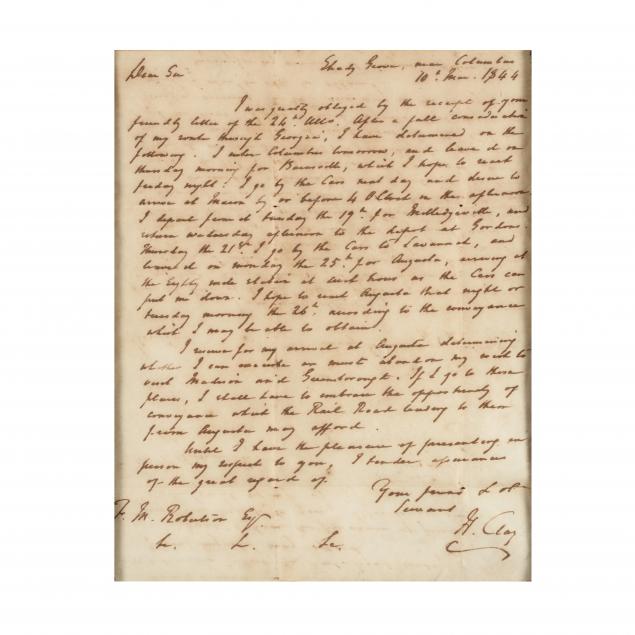 Shady Grove, near Columbus
Dear Sir 10th Mar. 1844
I was greatly obliged by the receipt of your
friendly letter of the 24th Ulto. After a full consideration
of my route through Georgia, I have determined on the
following. I enter Columbus tomorrow, and leave it on
thursday morning for Barnsville, which I hope to reach
friday night. I go by the Cars next day and desire to
arrive at Macon by or before 4 O'Clock in the afternoon
I depart from it tuesday the 19th for Milledgeville, and
wednesday afternoon to the depot at Gordon.
Thursday the 21st I go by the Cars to Savannah, and
on monday the 25th for Augusta, arriving at
the Eighty mile station at such hour as the Cars can
put me down. I hope to reach Augusta that night or
tuesday morning the 26th according to the conveyance
which I may be able to obtain.
I reserve for my arrival at Augusta determining
whether I can execute or must abandon my wish to
visit Madison and Greensborough. If I go to those
places, I shall have to embrace the opportunity of
conveyance which the Rail Road leading to them
from Augusta may afford.
Until I have the pleasure of presenting in
person my respect to you, I tender assurances
of the great regard of
Your friend & ob
Servant
F. M. Robertson Esq. H. Clay
&c. &c. &c.